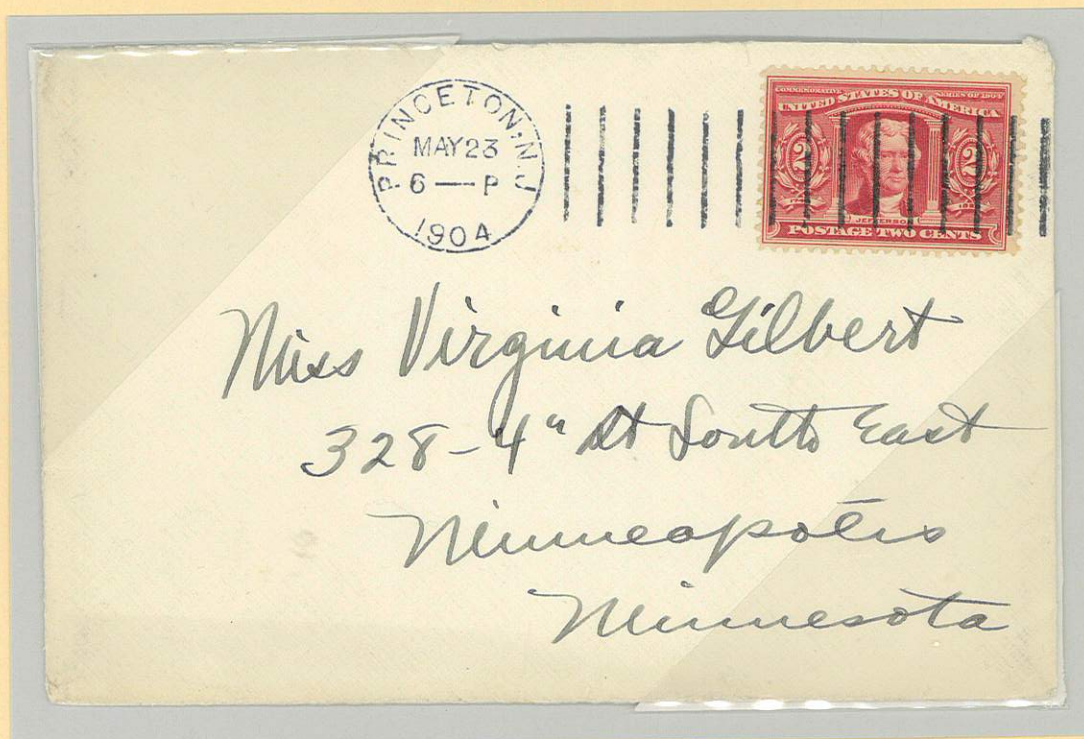 PRINCETON, N.J.
MAY 23
6 — P
1904
COMMEMORATIVE SERIES OF 1904
UNITED STATES OF AMERICA
2 2
JEFFERSON
POSTAGE TWO CENTS
Miss Virginia Gilbert
328-4" St South East
Minneapolis
Minnesota